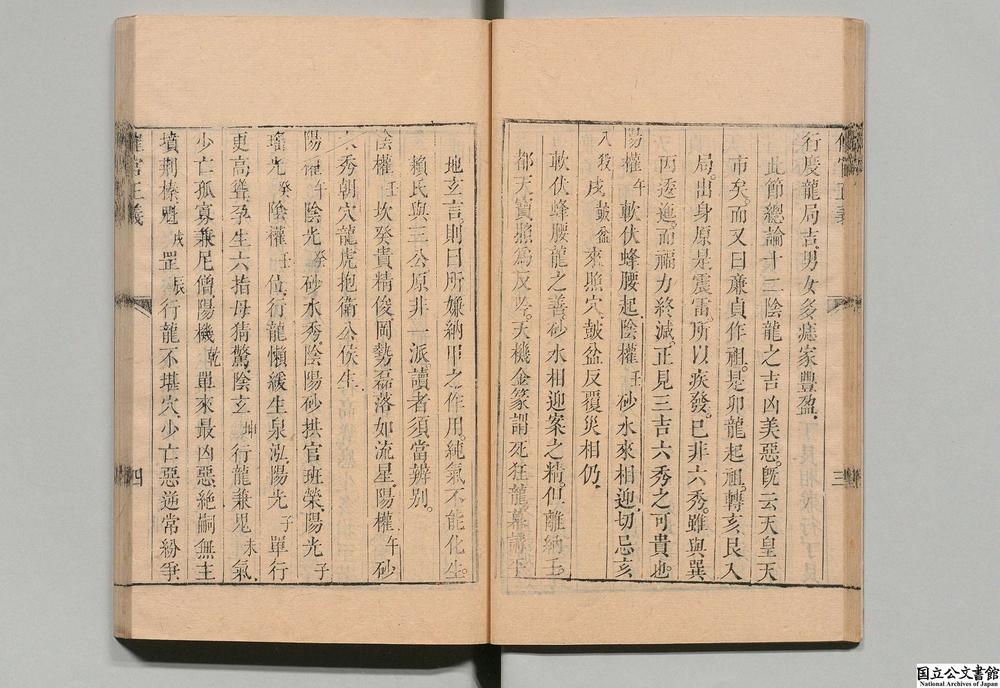 行度龍局吉男女多癡家豐盈
此節總論十二陰龍之吉凶美惡。旣云天皇天
市矣。而又曰廉貞作祖。是卯龍起祖。轉亥艮入
局。出身原是震雷。所以疾發。已非六秀。雖與巽
丙透迤。而福力終減。正見三吉六秀之可貴也
陽權午軟伏蜂腰起。陰權壬砂水來相迎切忌亥
入殺戌皷盆來照穴。皷盆反覆災相仍
軟伏蜂腰龍之善。砂水相迎案之精。但離納壬
都天寶照為反。天機金篆謂死狂龍。
地玄言。則曰所嫌納甲之作用。純氣不能化生。
賴氏與三公原非一派。讀者須當辨别。
陰權壬坎癸貴精俊岡勢磊落如流星。陽權午砂
六秀朝穴龍虎抱衛公侯生
陽權午陰光癸砂水秀陰陽砂拱官班榮。陽光子
瑤光癸陰權壬位行龍懶緩生泉泓。陽光子單行
更高聳。孕生六指母猜驚陰玄坤行龍兼鬼未氣
少亡孤寡兼尼僧陽機乾單來最凶惡絶嗣無主
墳荆榛魁戌罡辰行龍不堪穴少亡惡逆常紛爭
催官正義
三
四
国立公文書館
National Archives of Japan